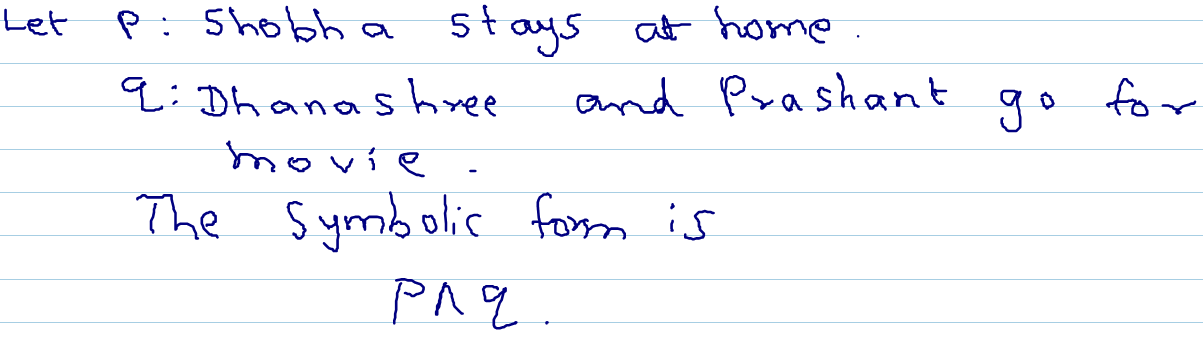 Let p: Shobha stays at home.
q: Dhanashree and Prashant go for
movie.
The symbolic form is
p∧q.